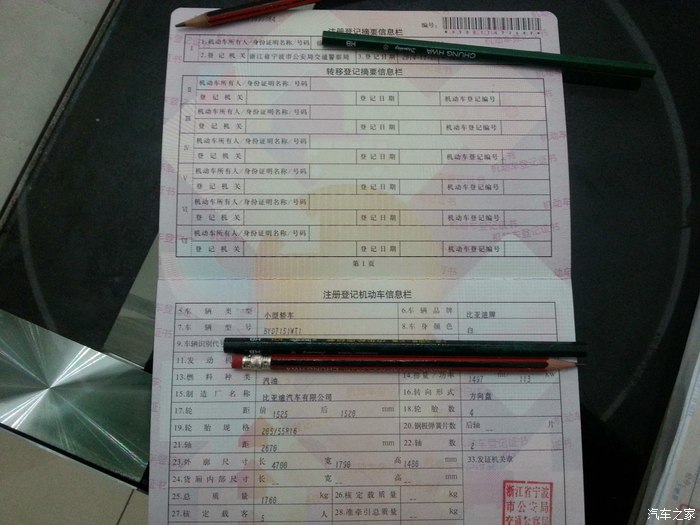 注册登记摘要信息栏
编号:
I 1.机动车所有人/身份证明名称/号码
2.登记机关 浙江省宁波市公安局交通警察局 3.登记日期
CHUNG HWA
HB
转移登记摘要信息栏
II 机动车所有人/身份证明名称/号码
登记机关 登记日期 机动车登记编号
III 机动车所有人/身份证明名称/号码
登记机关 登记日期 机动车登记编号
IV 机动车所有人/身份证明名称/号码
登记机关 登记日期 机动车登记编号
V 机动车所有人/身份证明名称/号码
登记机关 登记日期 机动车登记编号
VI 机动车所有人/身份证明名称/号码
登记机关 登记日期 机动车登记编号
VII 机动车所有人/身份证明名称/号码
登记机关 登记日期 机动车登记编号
第1页
注册登记机动车信息栏
5.车辆类型 小型轿车 6.车辆品牌 比亚迪牌
7.车辆型号 BYD7151WT1 8.车身颜色 白
9.车辆识别代
11.发动机
13.燃料种类 汽油 14.排量/功率 1497 113 kw
15.制造厂名称 比亚迪汽车有限公司 16.转向形式 方向盘
17.轮距 前 1525 后 1520 mm 18.轮胎数 4
19.轮胎规格 205/55R16 20.钢板弹簧片数 后轴 -- 片
21.轴距 2670 mm 22.轴数 2
23.外廓尺寸 长 4700 宽 1790 高 1480 mm 33.发证机关章
24.货厢内部尺寸 长 -- 宽 -- 高 -- mm
25.总质量 1760 kg 26.核定载质量 -- kg
27.核定载客 5 人 28.准牵引总质量 -- kg
浙江省宁波
市公安局
汽车之家